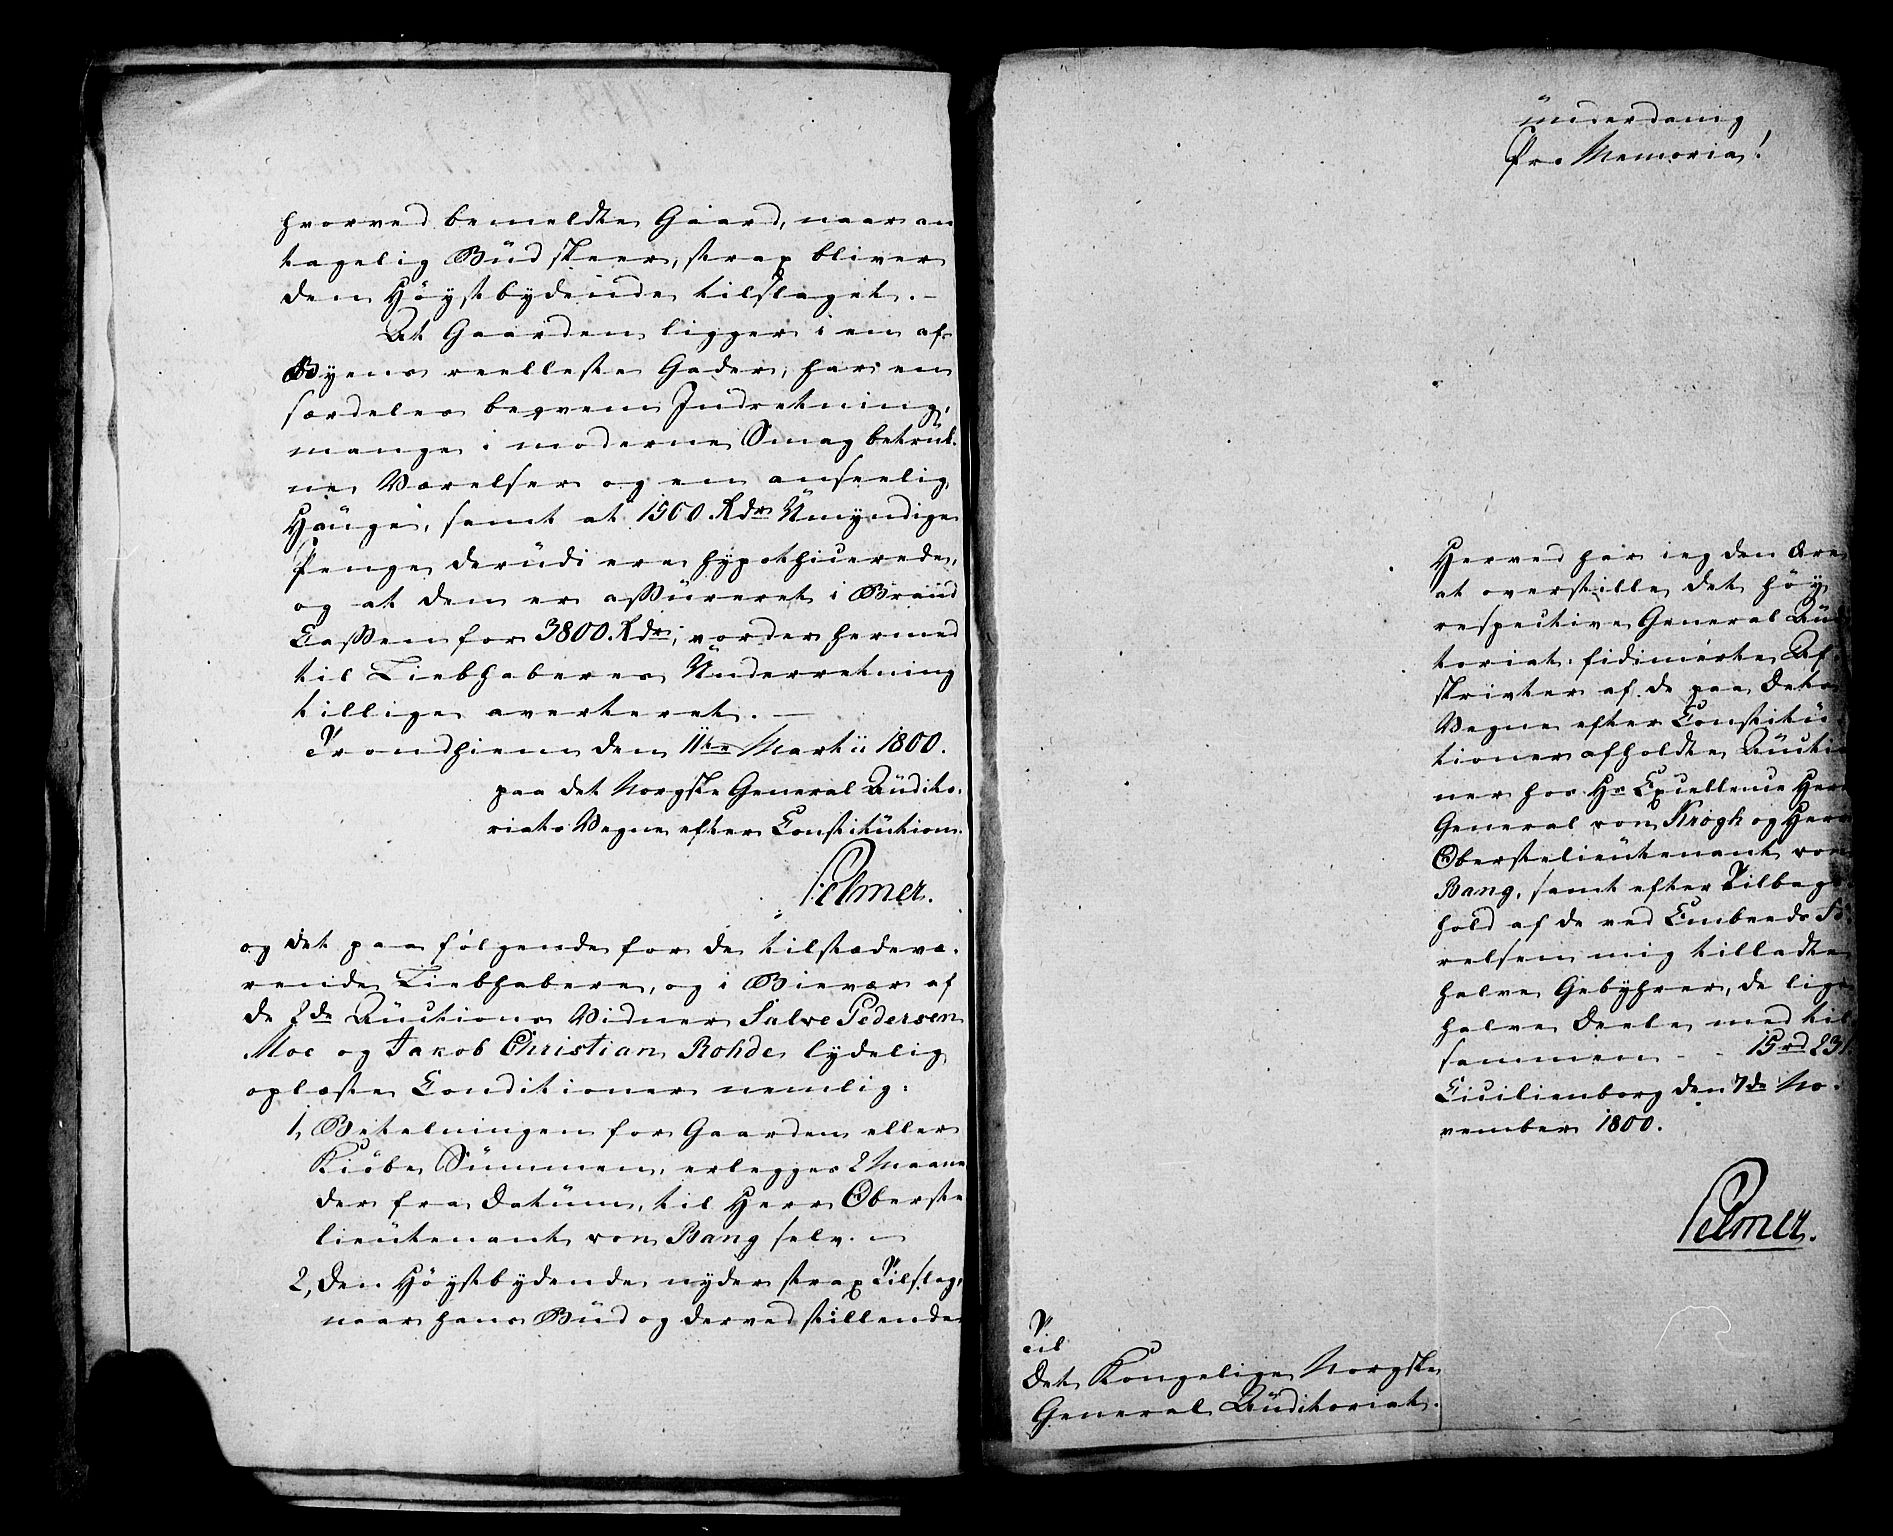 hvorved bemeldte Gaard, naar an
tagelig Büd skeer, strax bliver
den Höystbydende tilslaget. –
At Gaarden ligger i en af
Byens reelleste Gader, har en
særdeles beqvem Indretning,
mange i moderne Smag betruk-
ne Værelser og en anseelig
Hauge, samt at 1500 Rdr Umyndige
Penge derudi ere hypothicerede,
og at den er assüreret i Brand
Cassen for 3800 Rdr, vorder hermed
til Liebhaberes Underretning
tillige averteret. –
Trondhiem den 11te Martii 1800.
paa det Norgske General Audito-
riats Vegne efter Constitution.
Selmer.
og det paa følgende for de tilstædevæ-
rende Liebhabere, og i Bievær af
de 2de Auctions Vidner Salve Pedersen
Moe og Jakob Christian Rohde lydelig
oplæste Conditioner nemlig:
1, Betalningen for Gaarden eller
Kiøbe Summen, erlegges 2 Maane
der fra Datum, til Herr Oberste
lieutenant von Bang selv. –
2, Den Höystbydende nyder strax Tilslag,
naar hans Büd og derved stillende
Underdanig
Pro Memoria!
Herved har ieg den Ære
at overstille det höy
respective General Audi
toriat fidimerte Af-
skrivter af de paa Dets
Vegne efter Constitu-
tioner afholdte Auctio
ner hos Hs Excellence Herr
General von Krogh og Herr
Oberstelieutenant von
Bang, samt efter Tilbage
hold af de ved Embeeds Fö-
relsen mig tilladte
halve Gebyhrer, de lige
halve Deele med til
sammen - - 15 rd 23 s.
Cicilienborg den 7de No-
vember 1800.
Selmer.
Til
Det Kongelige Norgske
General Auditoriat.